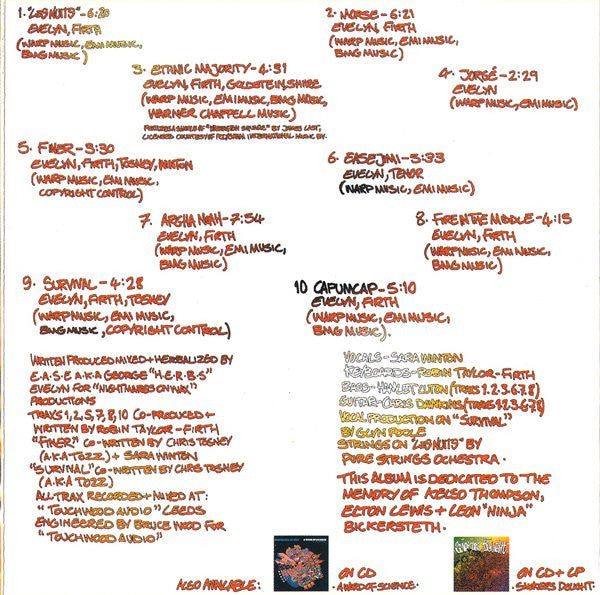 1. "LES NUITS" - 6:20
EVELYN, FIRTH
(WARP MUSIC, EMI MUSIC,
BMG MUSIC)
2. MORSE - 6:21
EVELYN, FIRTH
(WARP MUSIC, EMI MUSIC,
BMG MUSIC)
3. ETHNIC MAJORITY - 4:31
EVELYN, FIRTH, GOLDSTEIN, SHIRE
(WARP MUSIC, EMI MUSIC, BMG MUSIC,
WARNER CHAPPELL MUSIC)
BY JAMES LAST,
LICENSED COURTESY OF POLYGRAM INTERNATIONAL MUSIC BV.
4. JORGÉ - 2:29
EVELYN
(WARP MUSIC, EMI MUSIC)
5. FINER - 3:30
EVELYN, FIRTH, TOSNEY, WINTON
(WARP MUSIC, EMI MUSIC,
COPYRIGHT CONTROL)
6. EASE JIMI - 5:33
EVELYN, TENOR
(WARP MUSIC, EMI MUSIC)
7. ARGHA NOAH - 7:54
EVELYN, FIRTH
(WARP MUSIC, EMI MUSIC,
BMG MUSIC)
8. FIRE IN THE MIDDLE - 4:15
EVELYN, FIRTH
(WARP MUSIC, EMI MUSIC,
BMG MUSIC)
9. SURVIVAL - 4:28
EVELYN, FIRTH, TOSNEY
(WARP MUSIC, EMI MUSIC,
BMG MUSIC, COPYRIGHT CONTROL)
10 CAPUMCAP - 5:10
EVELYN, FIRTH
(WARP MUSIC, EMI MUSIC,
BMG MUSIC).
WRITTEN PRODUCED MIXED + HERBALIZED BY
E.A.S.E A.K.A GEORGE "H.E.R.B.S"
EVELYN FOR "NIGHTMARES ON WAX"
PRODUCTIONS
TRAKS 1, 2, 5, 7, 8, 10 CO-PRODUCED +
WRITTEN BY ROBIN TAYLOR - FIRTH
"FINER" CO-WRITTEN BY CHRIS TOSNEY
(A.K.A TOZZ) + SARA WINTON
"SURVIVAL" CO-WRITTEN BY CHRIS TOSNEY
(A.K.A TOZZ)
ALL TRAX RECORDED + MIXED AT:
"TOUCHWOOD AUDIO" LEEDS
ENGINEERED BY BRUCE WOOD FOR
"TOUCHWOOD AUDIO"
VOCALS - SARA WINTON
KEYBOARDS - ROBIN TAYLOR - FIRTH
BASS - HAMLET LUTON (TRAKS 1.2.3.6.7.8)
GUITAR - CHRIS DAWKINS (TRAKS 1.2.3.6.7.8)
VOCAL PRODUCTION ON "SURVIVAL"
BY GLYN POOLE
STRINGS ON "LES NUITS" BY
PURE STRINGS OCHESTRA.
THIS ALBUM IS DEDICATED TO THE
MEMORY OF KELSO THOMPSON,
ELTON LEWIS + LEON "NINJA"
BICKERSTETH.
ALSO AVAILABLE:
ON CD
· A WORD OF SCIENCE ·
ON CD + LP
· SMOKERS DELIGHT ·